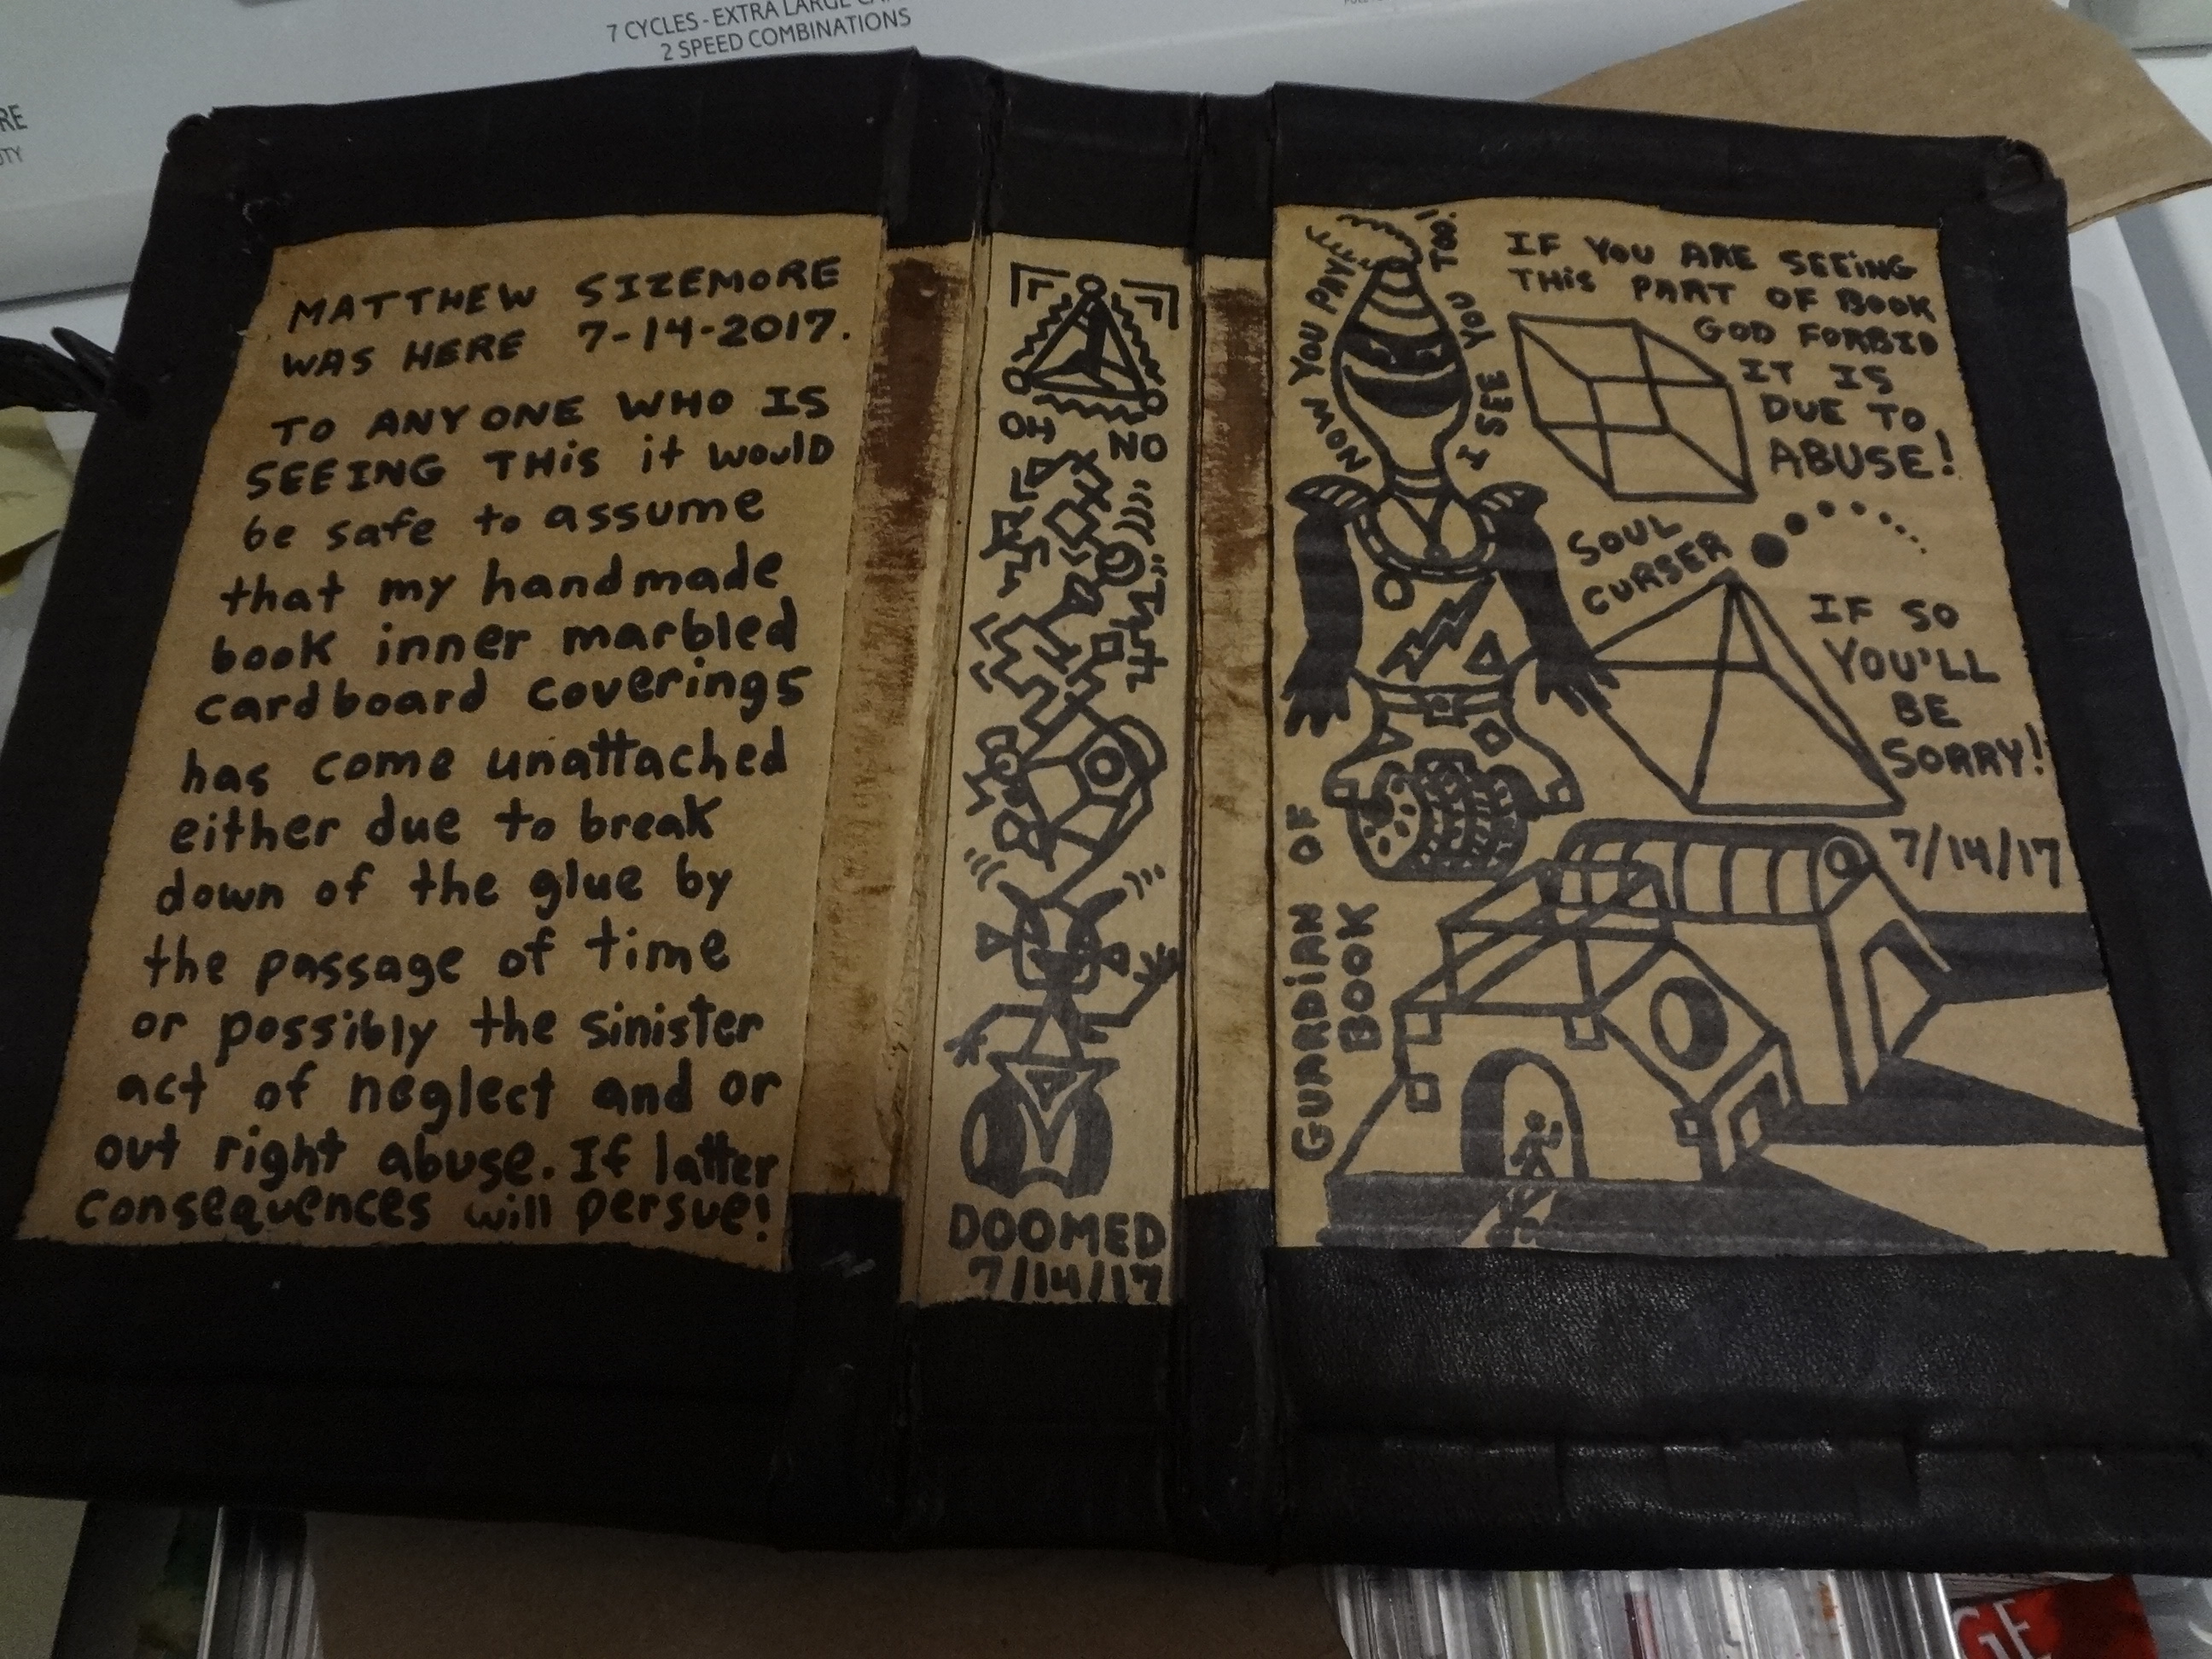 7 CYCLES - EXTRA LARGE
2 SPEED COMBINATIONS
RE
MATTHEW SIZEMORE
WAS HERE 7-14-2017.
TO ANYONE WHO IS
SEEING THiS it would
be safe to assume
that my handmade
book inner marbled
cardboard coverings
has come unattached
either due to break
down of the glue by
the passage of time
or possibly the sinister
act of neglect and or
out right abuse. If latter
consequences will persue!
OH NO
DOOMED
7/14/17
NOW YOU PAY
I SEE YOU TOO!
IF YOU ARE SEEiNG
THiS PART OF BOOK
GOD FORBID
IT IS
DUE TO
ABUSE!
SOUL
CURSER
IF SO
YOU'LL
BE
SORRY!
7/14/17
GUARDiAN OF
BOOK